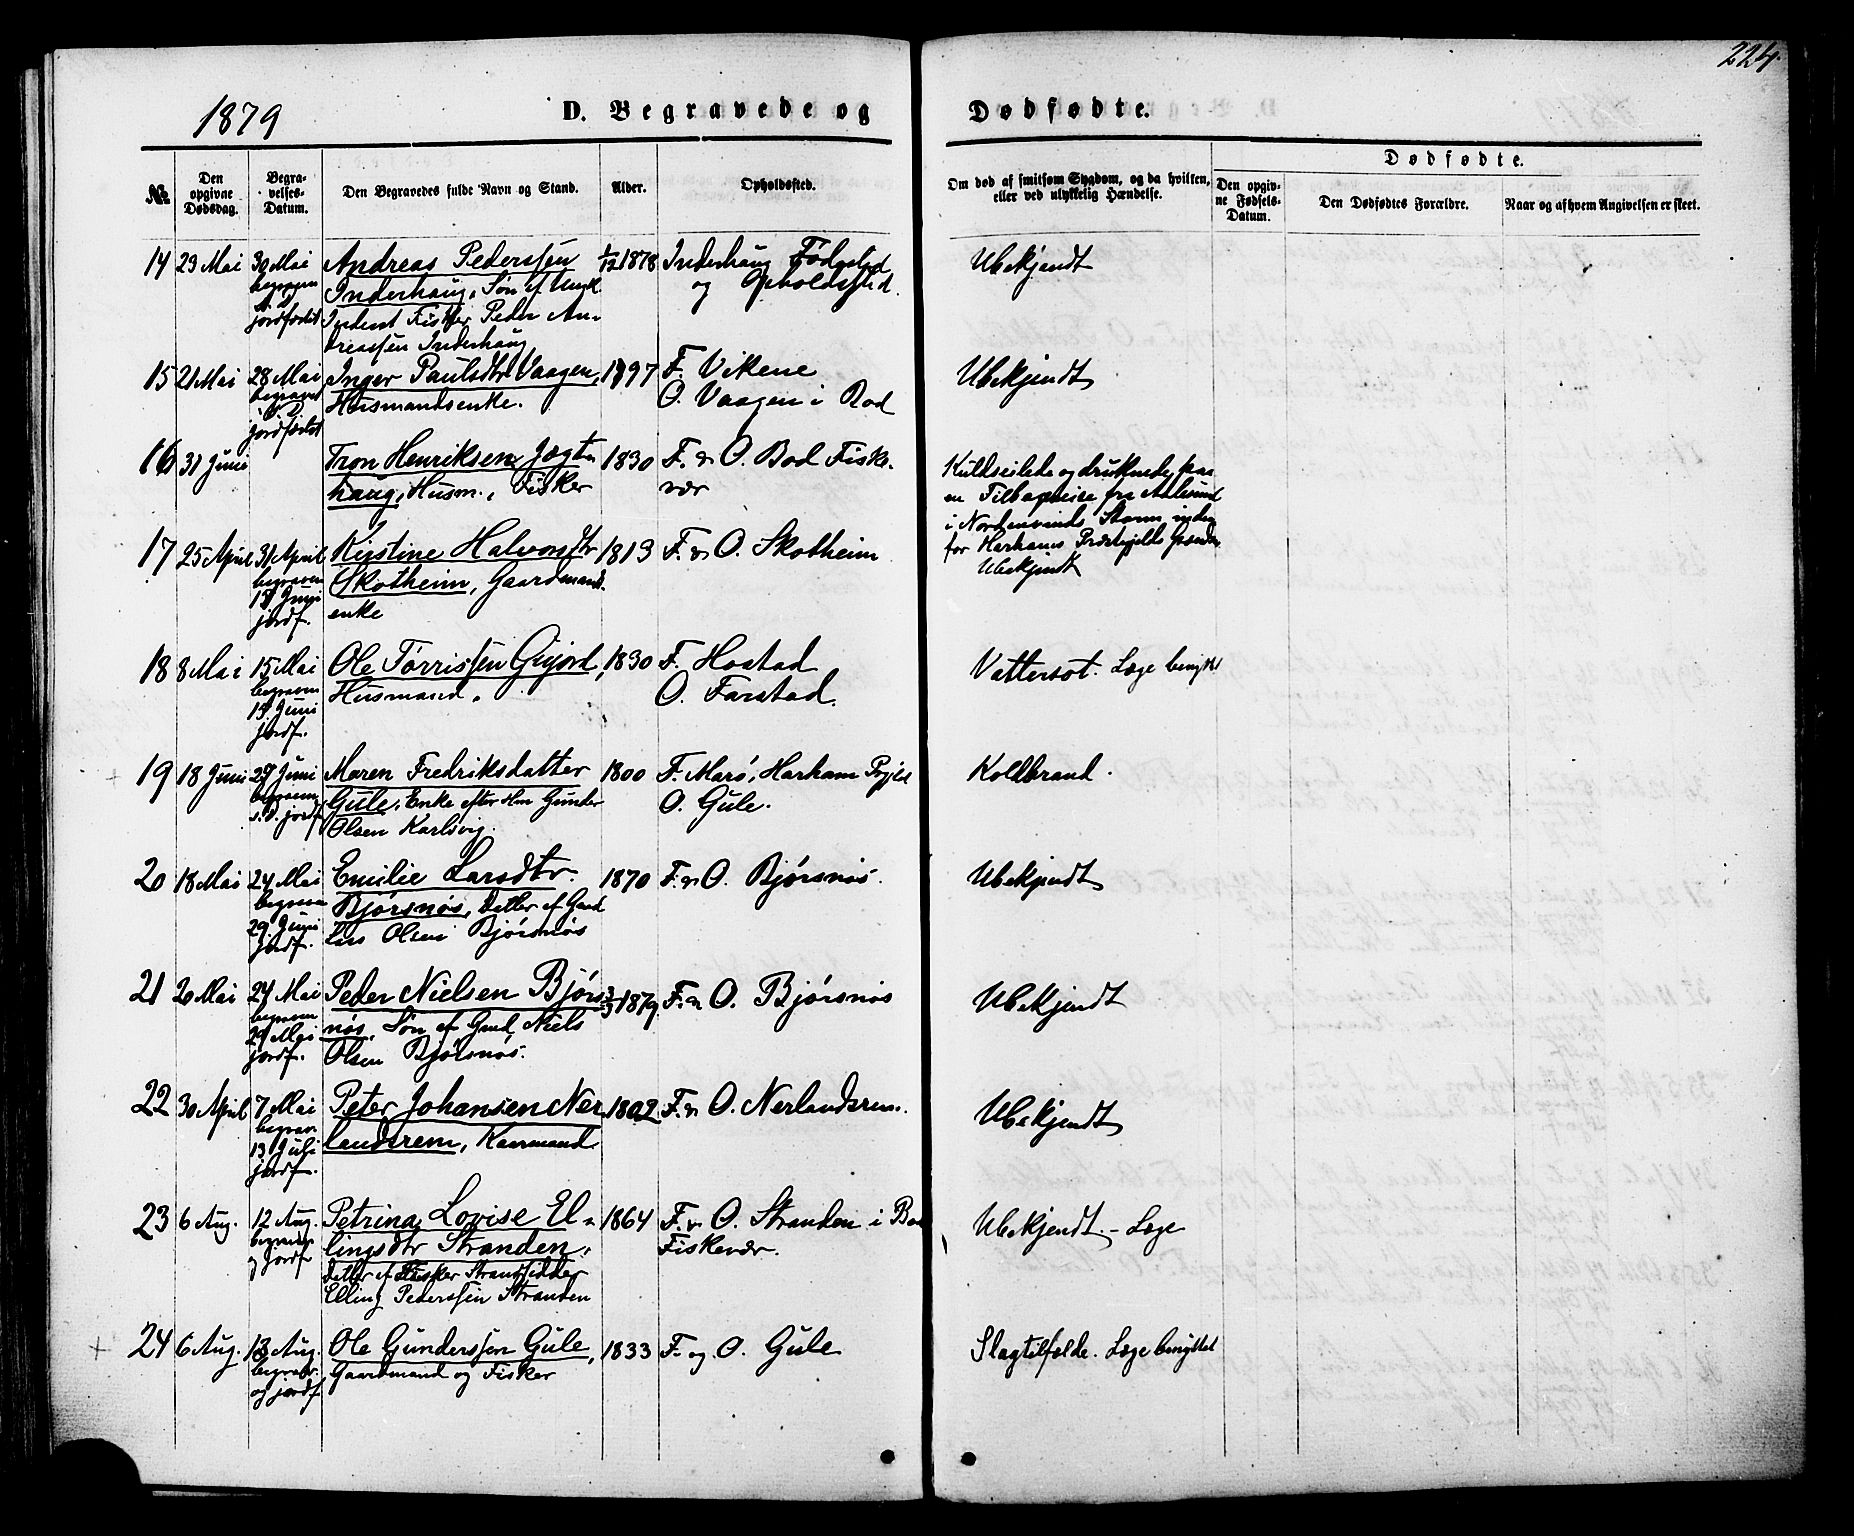 224.
1879
D. Begravede og Dødfødte.
№
Den opgivne Dødsdag.
Begravelses-Datum.
Den Begravedes fulde Navn og Stand.
Alder.
Opholdssted.
Om død af smitsom Sygdom, og da hvilken, eller ved ulykkelig Hændelse.
Dødfødte.
Den opgivne Fødsels-Datum.
Den Dødfødtes Forældre.
Naar og af hvem Angivelsen er skeet.
14 23 Mai 30 Mai Andreas Pederssen 1/12 1878 Inderhaug Fødested Ubekjendt
Inderhaug, Søn af og Opholdssted.
jordfæstet Fisker Peder An-
dreassen Inderhaug
15 21 Mai 28 Mai Inger Paulsdtr Vaagen, 1797 F. Vikene Ubekjendt
begravet Husmandsenke. O. Vaagen i Bod
jordfæstet
16 31 Juni Tron Henriksen Jægt- 1830 F. & O. Bod Fiske- Kuldseilede og druknede paa
haug, Husm., Fisker vær en Tilbagereise fra Aalesund
i Nordenvinds Storm inden
for Harhams Præstegjelds
17 25 April 31 April Kirstine Halvorsdtr 1813 F. & O. Skotheim Ubekjendt
begraven Skotheim, Gaardmands-
15 Juni enke
jordf.
18 8 Mai 15 Mai Ole Tørrissen Gijord, 1830 F. Hostad Vattersot. Læge benyttet
begraven Husmand. O. Farstad.
15 Juni
jordf.
19 18 Juni 27 Juni Maren Fredriksdatter 1800 F. Marø, Harham Pgjeld Koldbrand.
begraven Gule, Enke efter Hm Gunder O. Gule.
s. D. jordf Olsen Karlsvig.
20 18 Mai 24 Mai Emilie Larsdtr. 1870 F. & O. Bjørsnøs. Ubekjendt
begraven Bjørsnøs, Datter af Gmd
29 Juni Lars Olsen Bjørsnøs
jordf.
21 20 Mai 24 Mai Peder Nielsen Bjørs- 3/3 1879 F. & O. Bjørsnøs Ubekjendt
begraven nøs, Søn af Gmd Niels
29 Mai Olsen Bjørsnøs.
jordf.
22 30 April 7 Mai Peter Johansen Ner- 1802 F. & O. Nerlandsrem. Ubekjendt
begrav. landsrem, Kaarmand
13 Juli
jordf.
23 6 Aug. 12 Aug. Petrina Lovise El- 1864 F. & O. Stranden i Bod Ubekjendt - Læge
begravet lingsdtr Stranden, Fiskevær.
og jordf Datter af Fisker Strandsidder
Elling Pederssen Stranden
24 6 Aug. 13 Aug. Ole Gunderssen Gule, 1833 F. og O. Gule Slagtilfælde. Læge benyttet
begravet Gaardmand og Fisker
og jordf